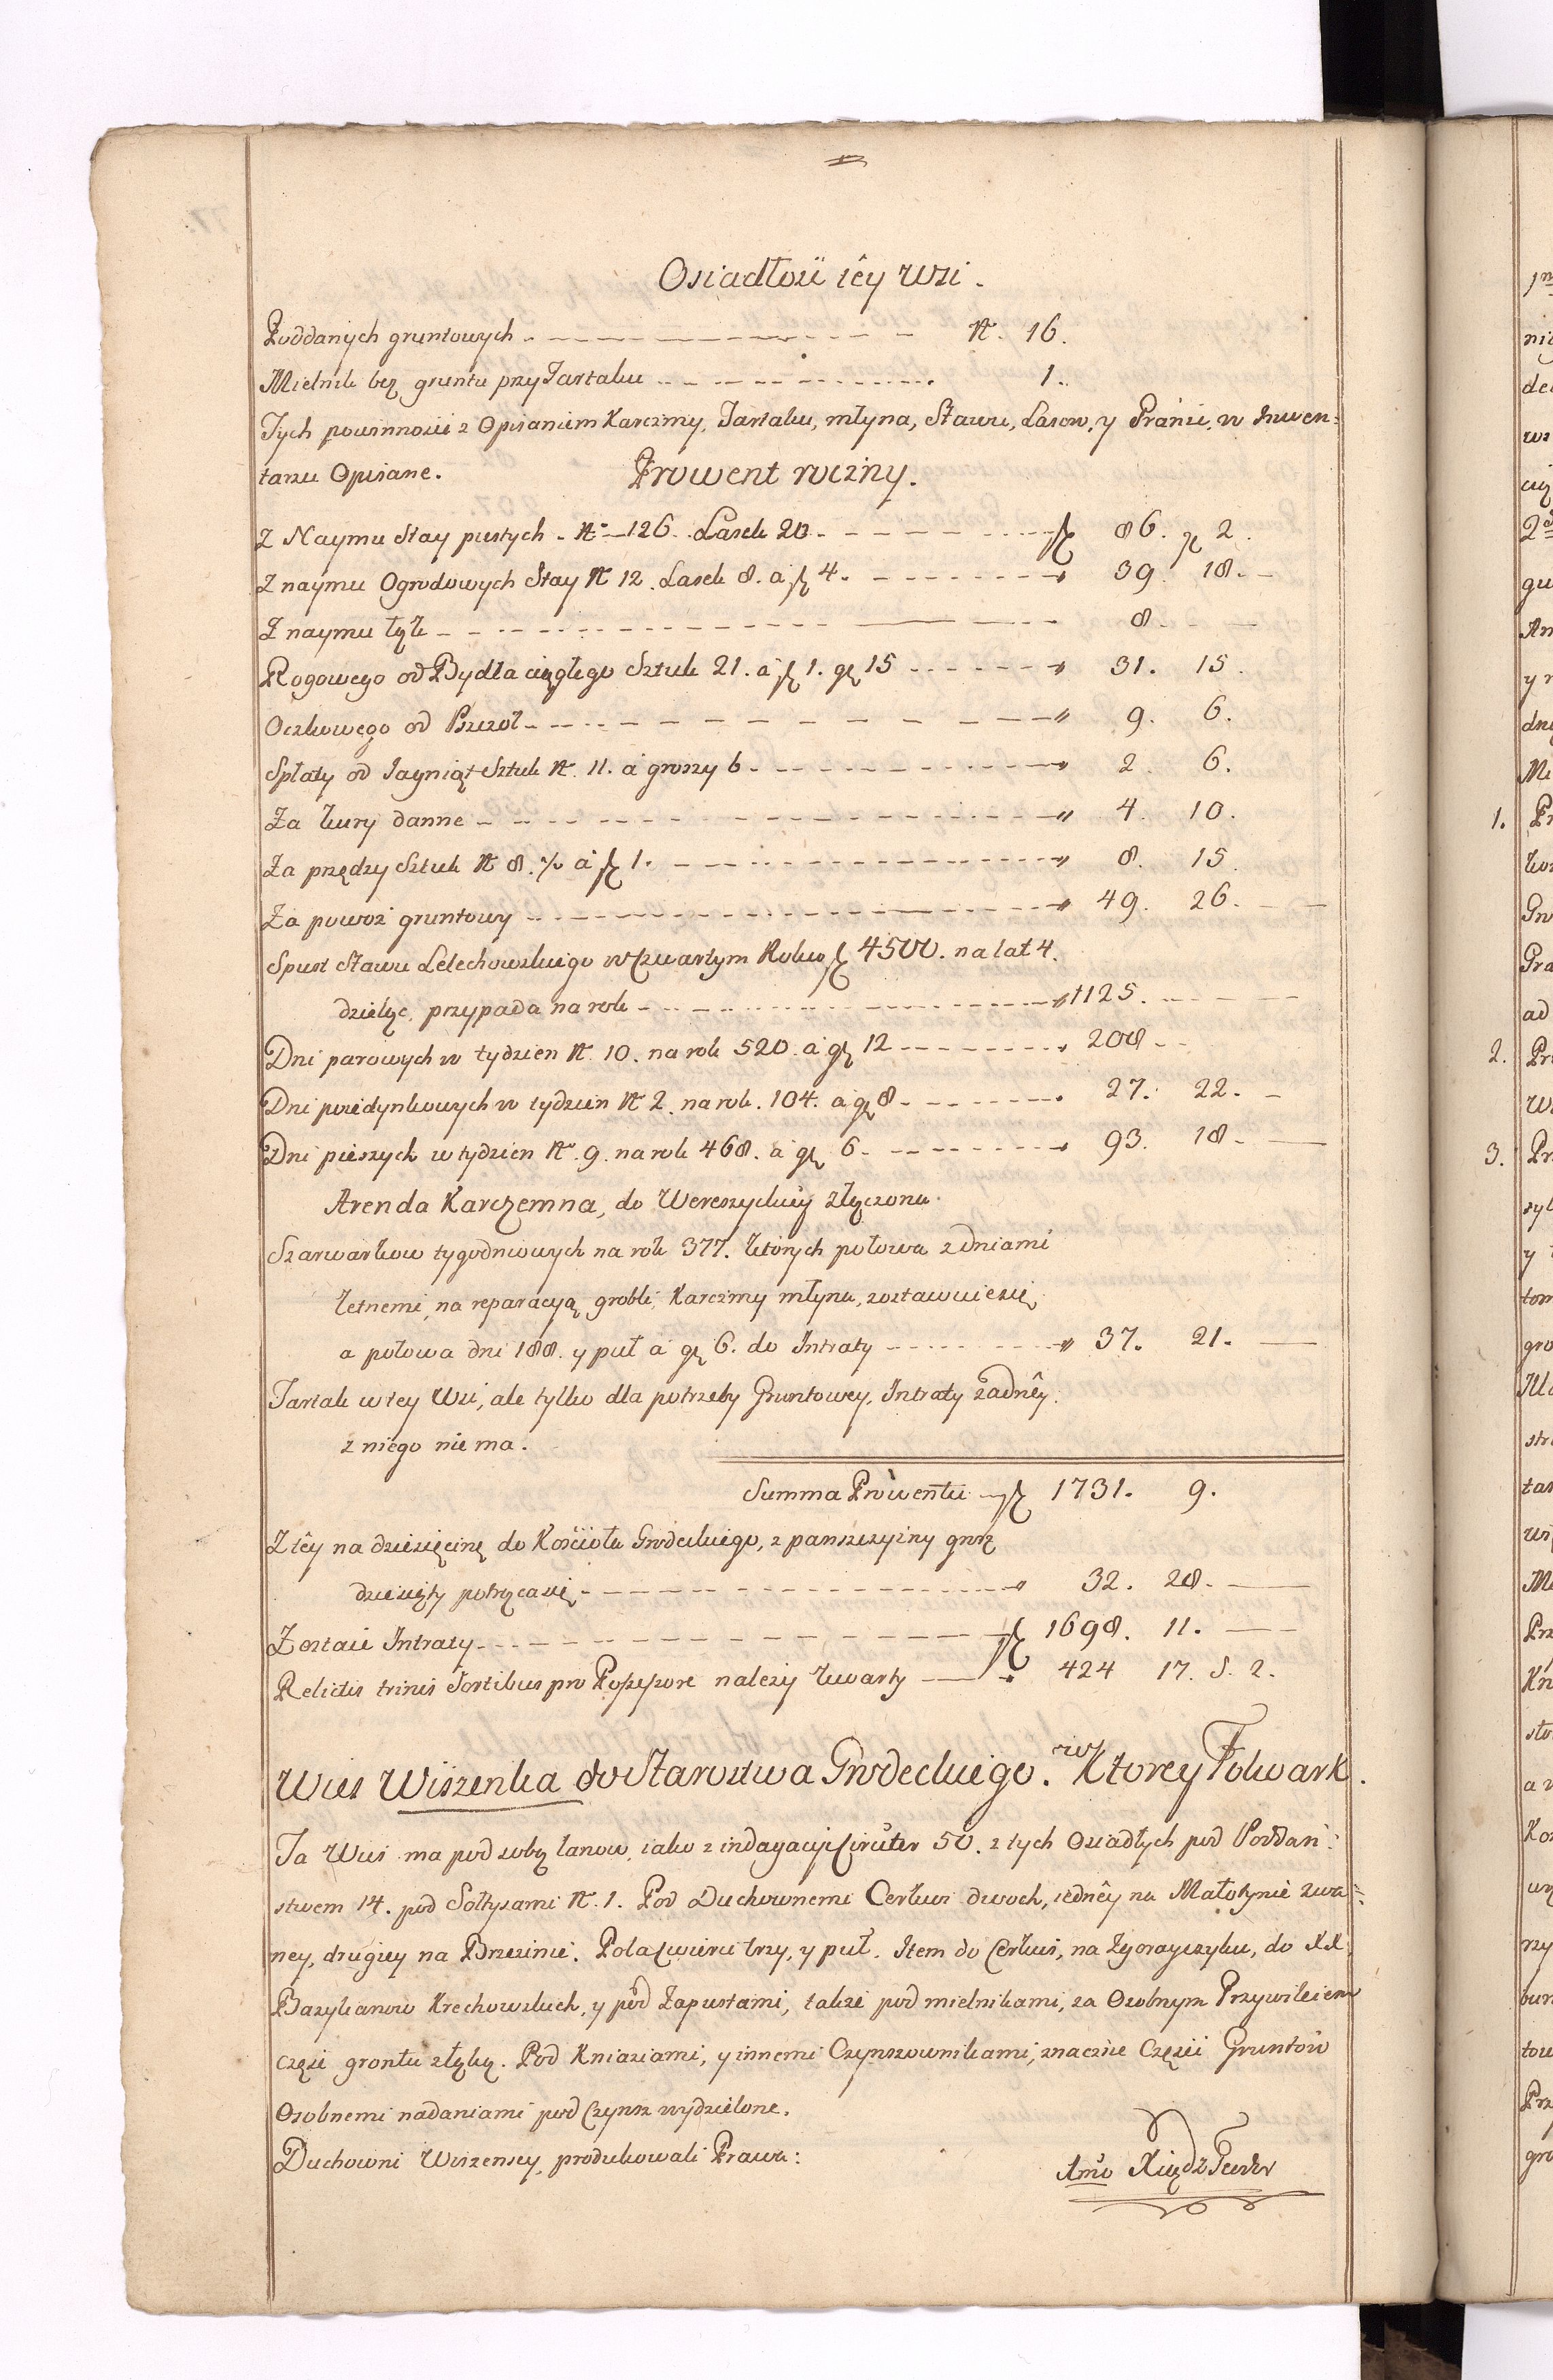 Osiadłość téy Wsi.
Poddanych gruntowych N. 16.
Mielnik bez gruntu przy Tartaku 1.
Tych powinności z Opisaniem Karczmy, Tartaku, młyna, Stawu, Lasow, y Granic, w Inwen=
tarzu Opisane. Prowent roczny.
Z Naymu Stay pustych N. 126. Lasek 20 zł 86. gr 2.
Z naymu Ogrodowych Stay N 12. Lasek 8. à zł 4. 39. 18.
Z naymu łąk 8.
Rogowego od Bydła ciągłego Sztuk 21. à zł 1. gr 15 31. 15.
Oczkowego od Pszczół 9. 6.
Spłaty od Jagniąt Sztuk N. 11. à groszy 6 2. 6.
Za kury danne 4. 10.
Za przędzy Sztuk N 8. ½ à zł 1. 8. 15.
Za powoz gruntowy 49. 26.
Spust Stawu Lelechowskiego w Czwartym Roku zł 4500. na lat 4.
dzieląc, przypada na rok 1125.
Dni parowych w tydzien N. 10. na rok 520. à gr 12 208
Dni poiedynkowych w tydzien N 2. na rok. 104. à gr 8 27. 22.
Dni pieszych w tydzien N. 9. na rok 468. à gr 6. 93. 18.
Arenda Karczemna, do Wereszyckiéy złączona.
Szarwarkow tygodniowych na rok 377. których połowa z dniami
letnemi, na reparacyą grobli, Karczmy młyna, zostawuie się,
a połowa dni 188. y puł à gr 6. do Intraty 37. 21.
Tartak w tey Wsi, ale tylko dla potrzeby Gruntowey, Intraty żadnéy
z niego nie ma.
Summa Prowentu zł 1731. 9.
Z téy na dziesięcinę do Kościoła Grodeckiego, z panszczyzny grosz
dziesiąty potrąca się 32. 28.
Zostaie Intraty zł 1698. 11.
Relictis trinis Sortibus pro Possessore należy kwarty 424 17. S. 2.
Wieś Wiszenka do Starostwa Grodeckiego. w Ktorey Folwark.
Ta Wieś ma pod sobą łanow, iako z indagacyi Circiter 50. z tych Osiadłych pod Poddań=
stwem 14. pod Sołtysami N. 1. Pod Duchownemi Cerkwi dwoch, iednéy na Małożynie zwa=
ney, drugiey na Brzezinie. Pola Cwierci trzy, y puł. Item do Cerkwi, na Zgorayczyku, do XX.
Bazylianow Krechowskich, y pod Zapustami, także pod mielnikami, za Osobnym Przywileiem
części grontu złęką. Pod Kniaziami, y innemi Czynszownikami, znacznie Części Gruntow
Osobnemi nadaniami pod Czynsz wydzielone.
Duchowni Wiszenscy, produkowali Prawa:
Imo Xiądz Teodor